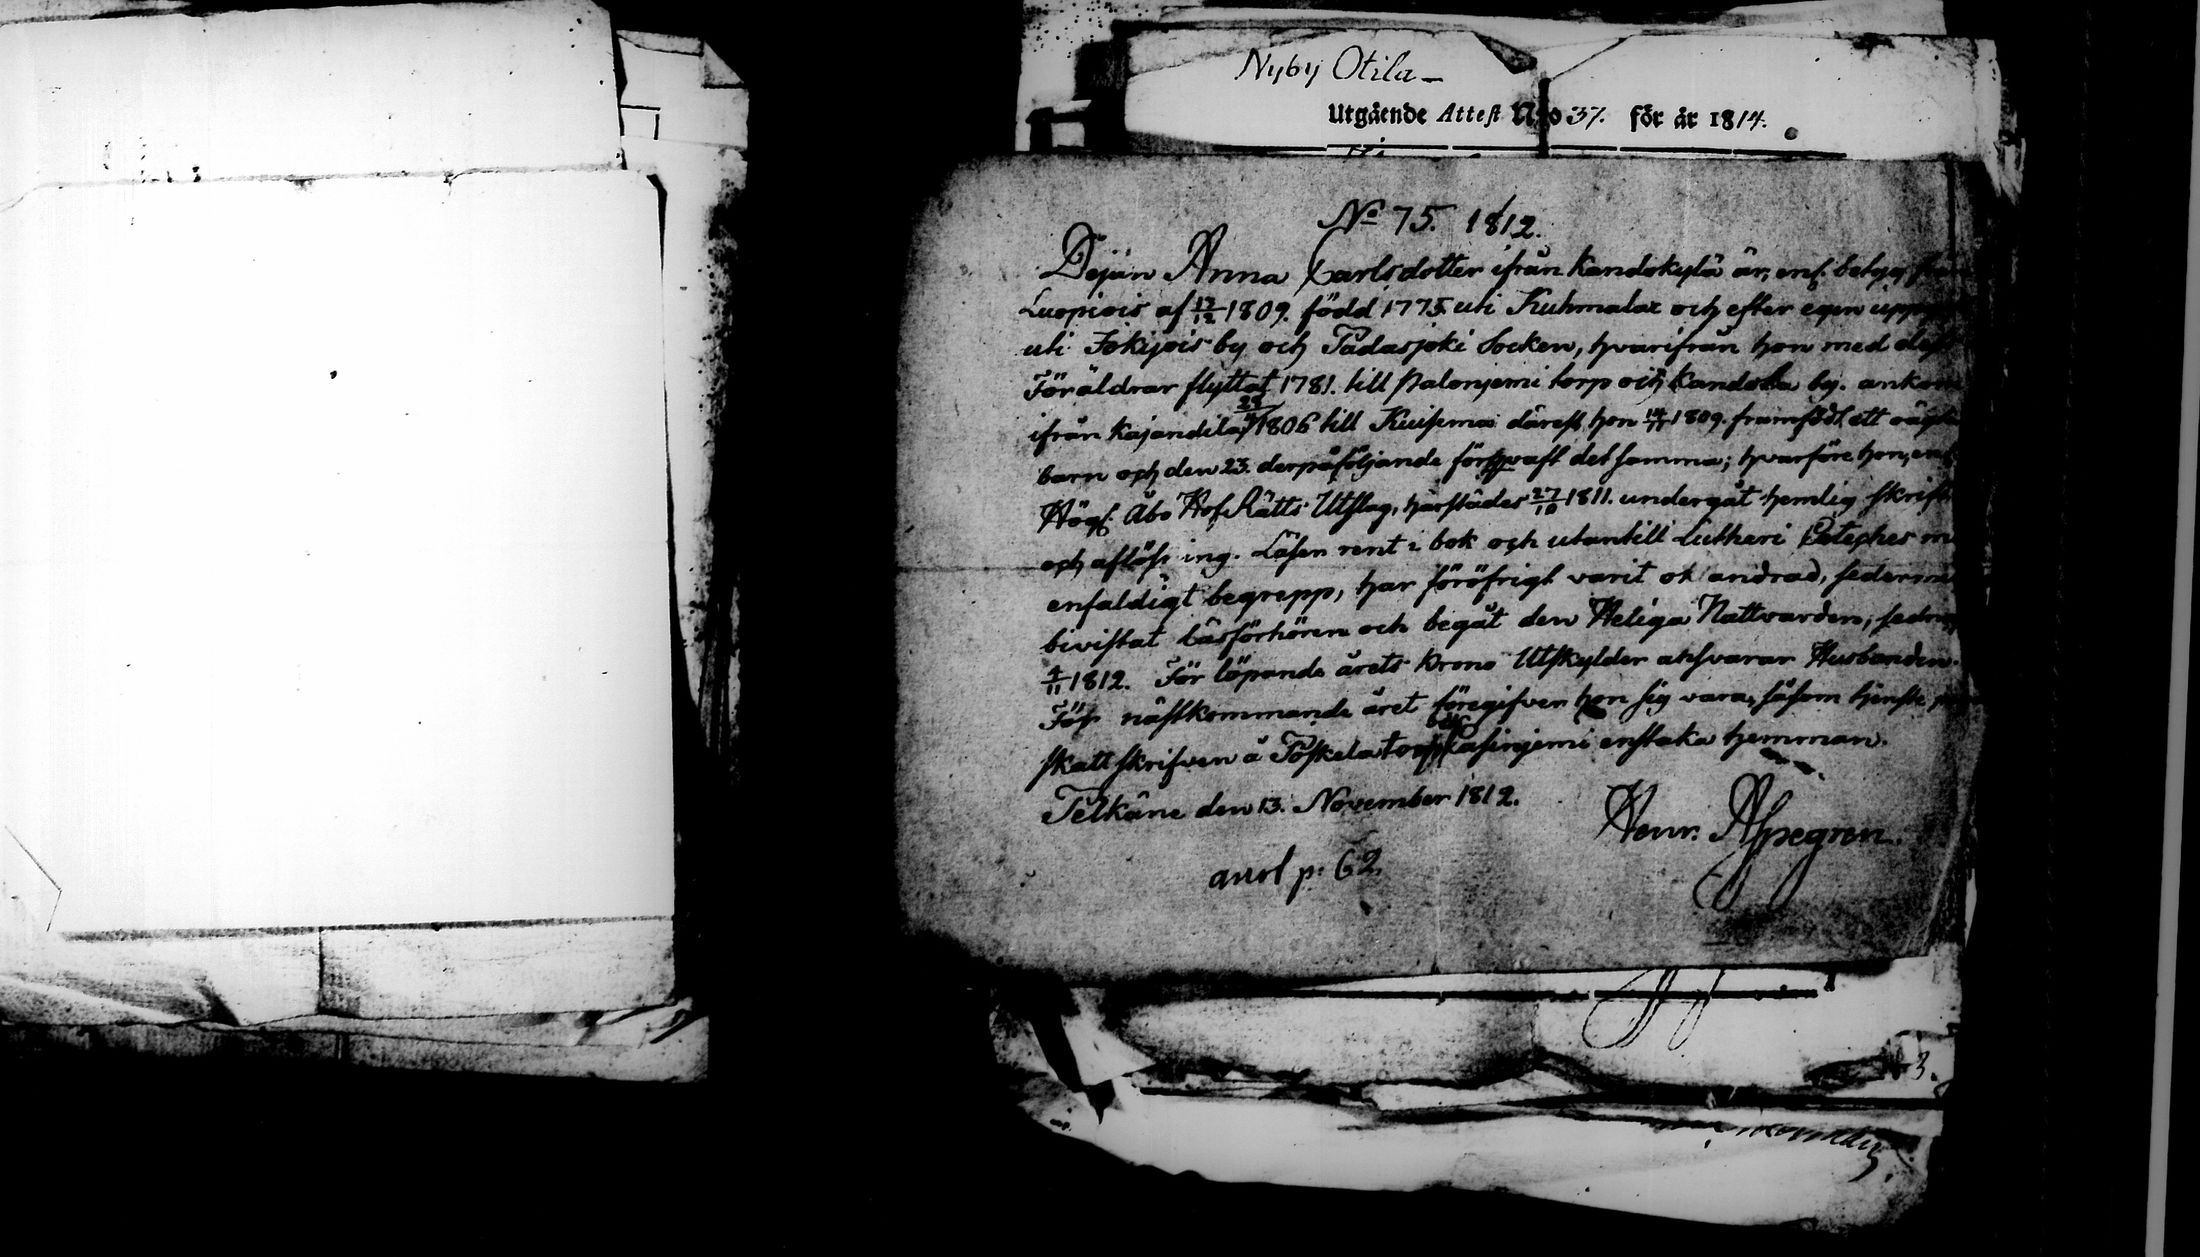 Nyby Otila
Utgående Attest N:o 37. för år 1814.
No 75. 1812.
Dejan Anna Carlsdotter ifrån Kandokylä är, enl. betyg från
Luopiois af 12/12 1809. född 1775 uti Kuhmalax och efter egen
uti Jokijois by och Padasjoki Socken, hvarifrån hon med
Föräldrar flyttat 1781. till Salonjemi torp och by. ankom
ifrån Kajandila 1806 till Kuisema därest hon 14/11 1809. framfödt ett oägta
barn och den 23. derpåföljande det samma; hvarföre hon, enl.
Högl. Åbo Hof Rätts Utslag, härstädes 27/10 1811. undergåt hemlig skrift
och aflösning. Läsen rent i bok och utantill Lutheri
enfaldigt begrepp, har föröfrigt varit oklandrad,
bivistat Läsförhören och begåt den Heliga Nattvarden,
4/11 1812. För löpande årets Krono Utskylder ansvarar Husbonden.
För nästkommande året föregifven hon sig vara, såsom
skattskrifven å enstaka hemman.
Pelkäne den 13. November 1812.
Henr. Aspegren.
p: 62.
3.